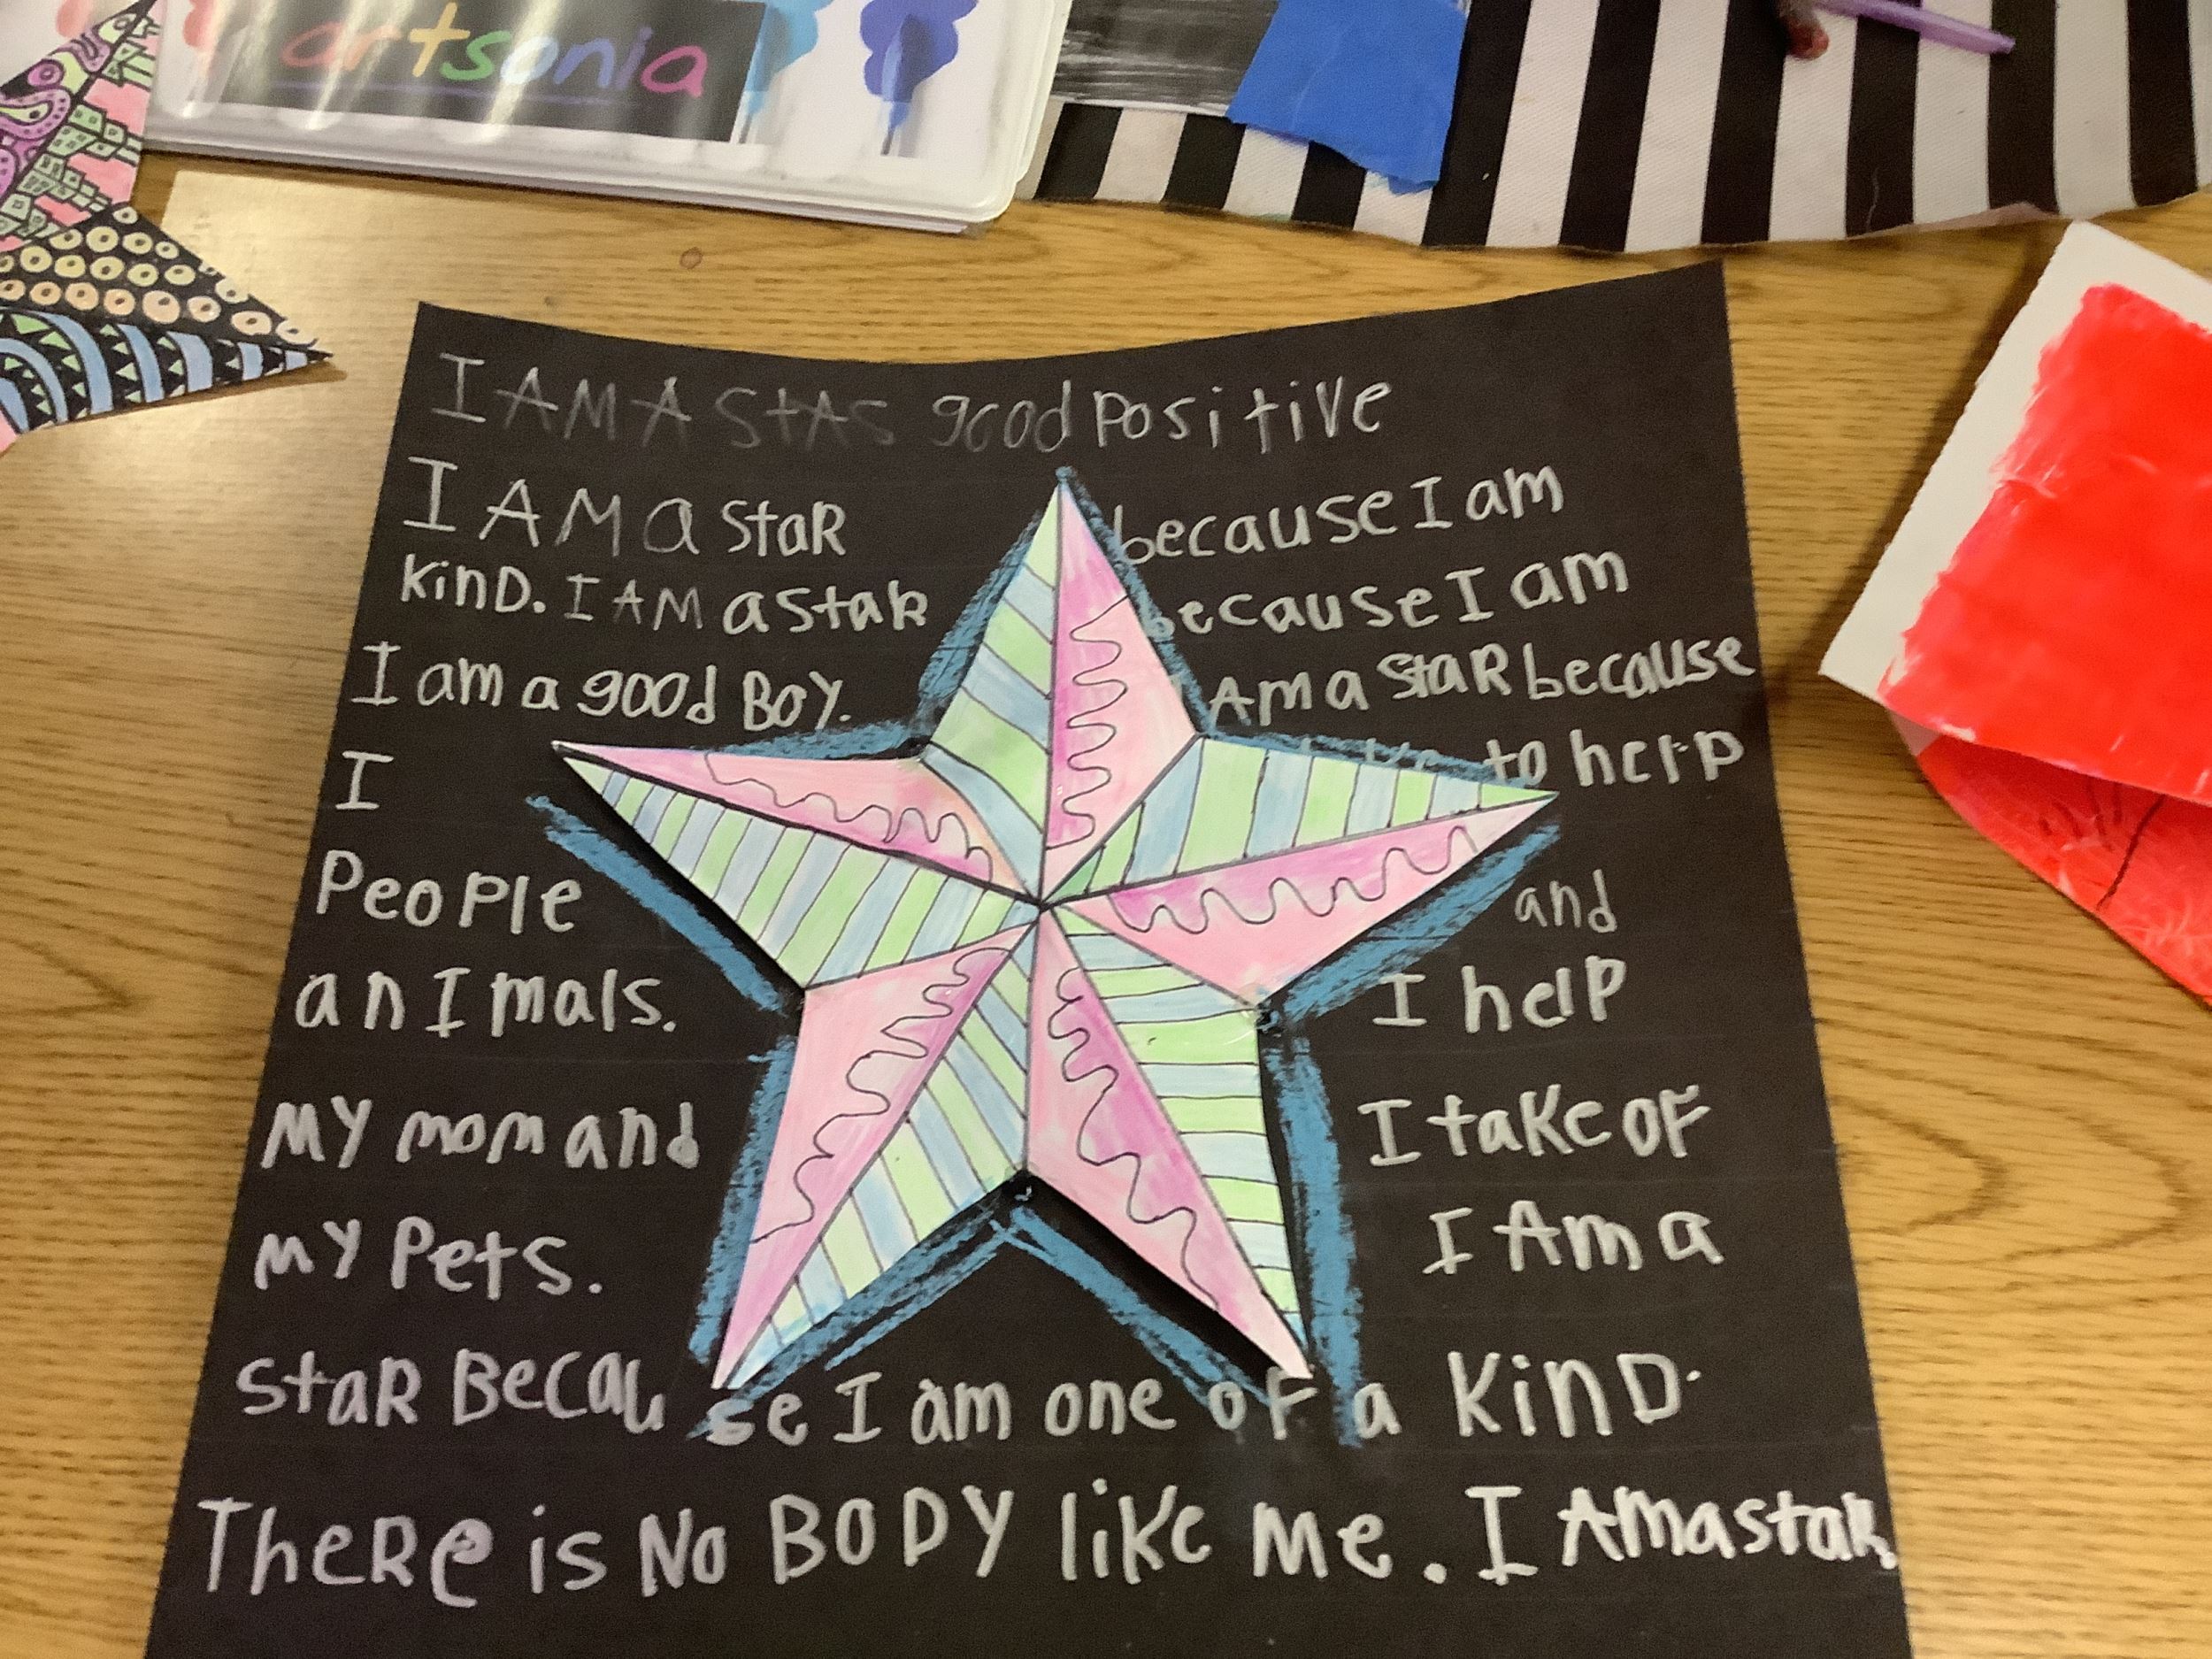 artsonia
I AM A STAS good Positive
I AM a StaR because I am
KinD. I AM a StaR because I am
I am a good Boy. I Am a StaR because
I to help
People and
anImals. I help
MY mom and I taKe OF
MY Pets. I Am a
StaR Because I am one oF a KinD.
TheRe is No BODY liKe Me. I AmastaR